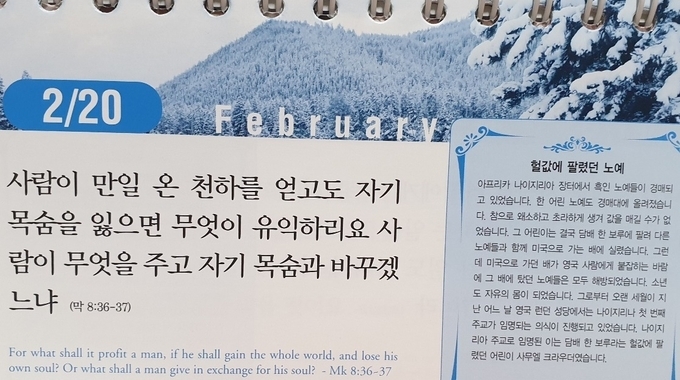 2/20
February
사람이 만일 온 천하를 얻고도 자기
목숨을 잃으면 무엇이 유익하리요 사
람이 무엇을 주고 자기 목숨과 바꾸겠
느냐 (막 8:36-37)
For what shall it profit a man, if he shall gain the whole world, and lose his
own soul? Or what shall a man give in exchange for his soul? - Mk 8:36-37
헐값에 팔렸던 노예
아프리카 나이지리아 장터에서 흑인 노예들이 경매되
고 있었습니다. 한 어린 노예도 경매대에 올려졌습니
다. 참으로 왜소하고 초라하게 생겨 값을 매길 수가 없
었습니다. 그 어린이는 결국 담배 한 보루에 팔려 다른
노예들과 함께 미국으로 가는 배에 실렸습니다. 그런
데 미국으로 가던 배가 영국 사람에게 붙잡히는 바람
에 그 배에 탔던 노예들은 모두 해방되었습니다. 소년
도 자유의 몸이 되었습니다. 그로부터 오랜 세월이 지
난 어느 날 영국 런던 성당에서는 나이지리아 첫 번째
주교가 임명되는 의식이 진행되고 있었습니다. 나이지
리아 주교로 임명된 이는 담배 한 보루라는 헐값에 팔
렸던 어린이 사무엘 크라우더였습니다.